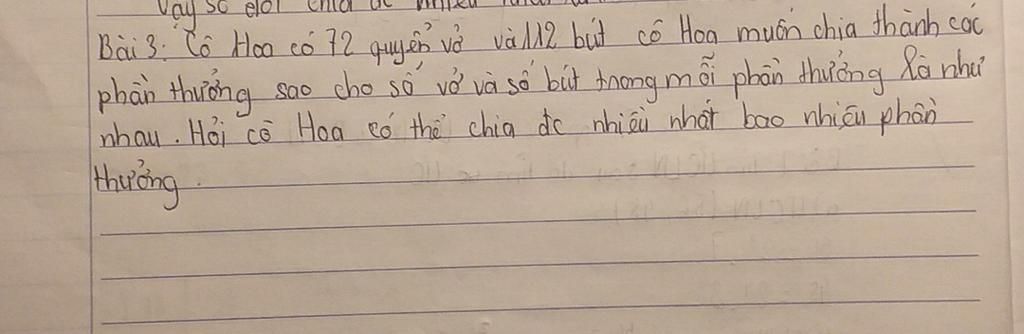 Vậy số đội chia đc nhiều
Bài 3: Cô Hoa có 72 quyển vở và 112 bút cô Hoa muốn chia thành các
phần thưởng sao cho số vở và số bút trong mỗi phần thưởng là như
nhau. Hỏi cô Hoa có thể chia đc nhiều nhất bao nhiêu phần
thưởng.